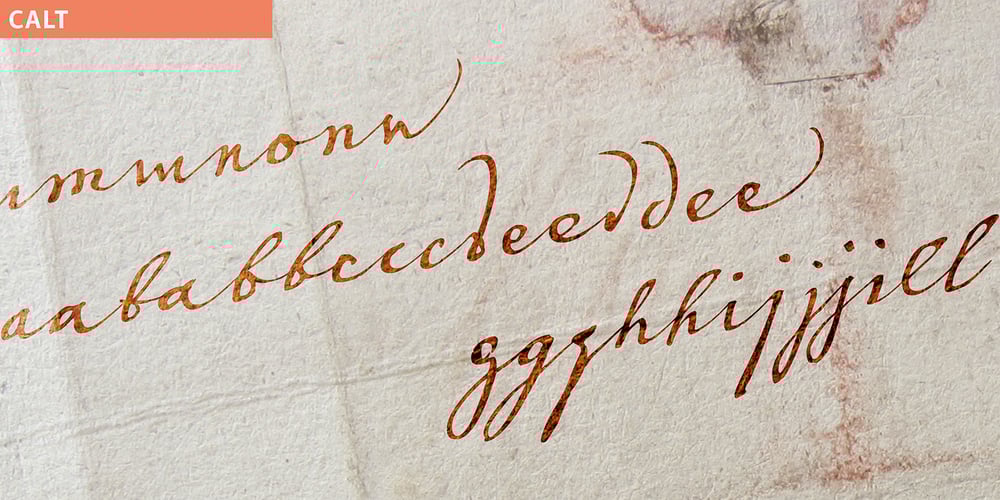 CALT
aababbcccdeeddee
ggghhijjjill